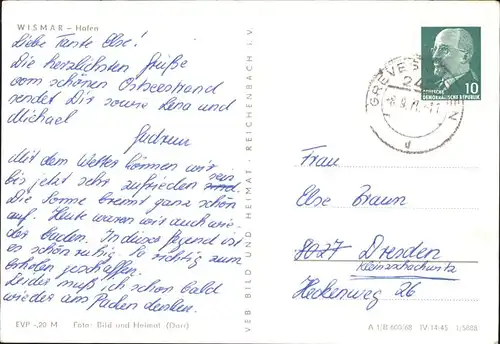 WISMAR - Hafen
Liebe Tante Else!
Die herzlichsten Grüße
vom schönen Ostseestrand
sendet Dir sowie Lena und
Michael
Gudrun
Mit dem Wetter können wir
bis jetzt sehr zufrieden sein
Die Sonne brennt ganz schön
auf. Heute waren wir auch wie-
der baden. In dieser Gegend ist
es schön ruhig. So richtig zum
erholen geschaffen.
Leider muß ich schon bald
wieder ans Packen denken.
EVP -,20 M Foto: Bild und Heimat (Dart)
VEB BILD UND HEIMAT · REICHENBACH i. V.
GREVES
24
10
DEUTSCHE
DEMOKRATISCHE REPUBLIK
d
Frau
Else Braun
8027 Dresden
Kleinzschachwitz
Heckenweg 26
A 1/B 603/68 IV-14-45 1/5888